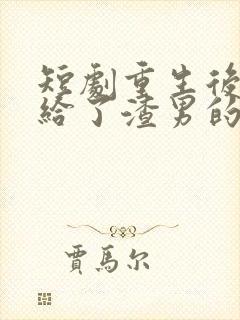 短劇重生後
給了渣男的
賈馬尔